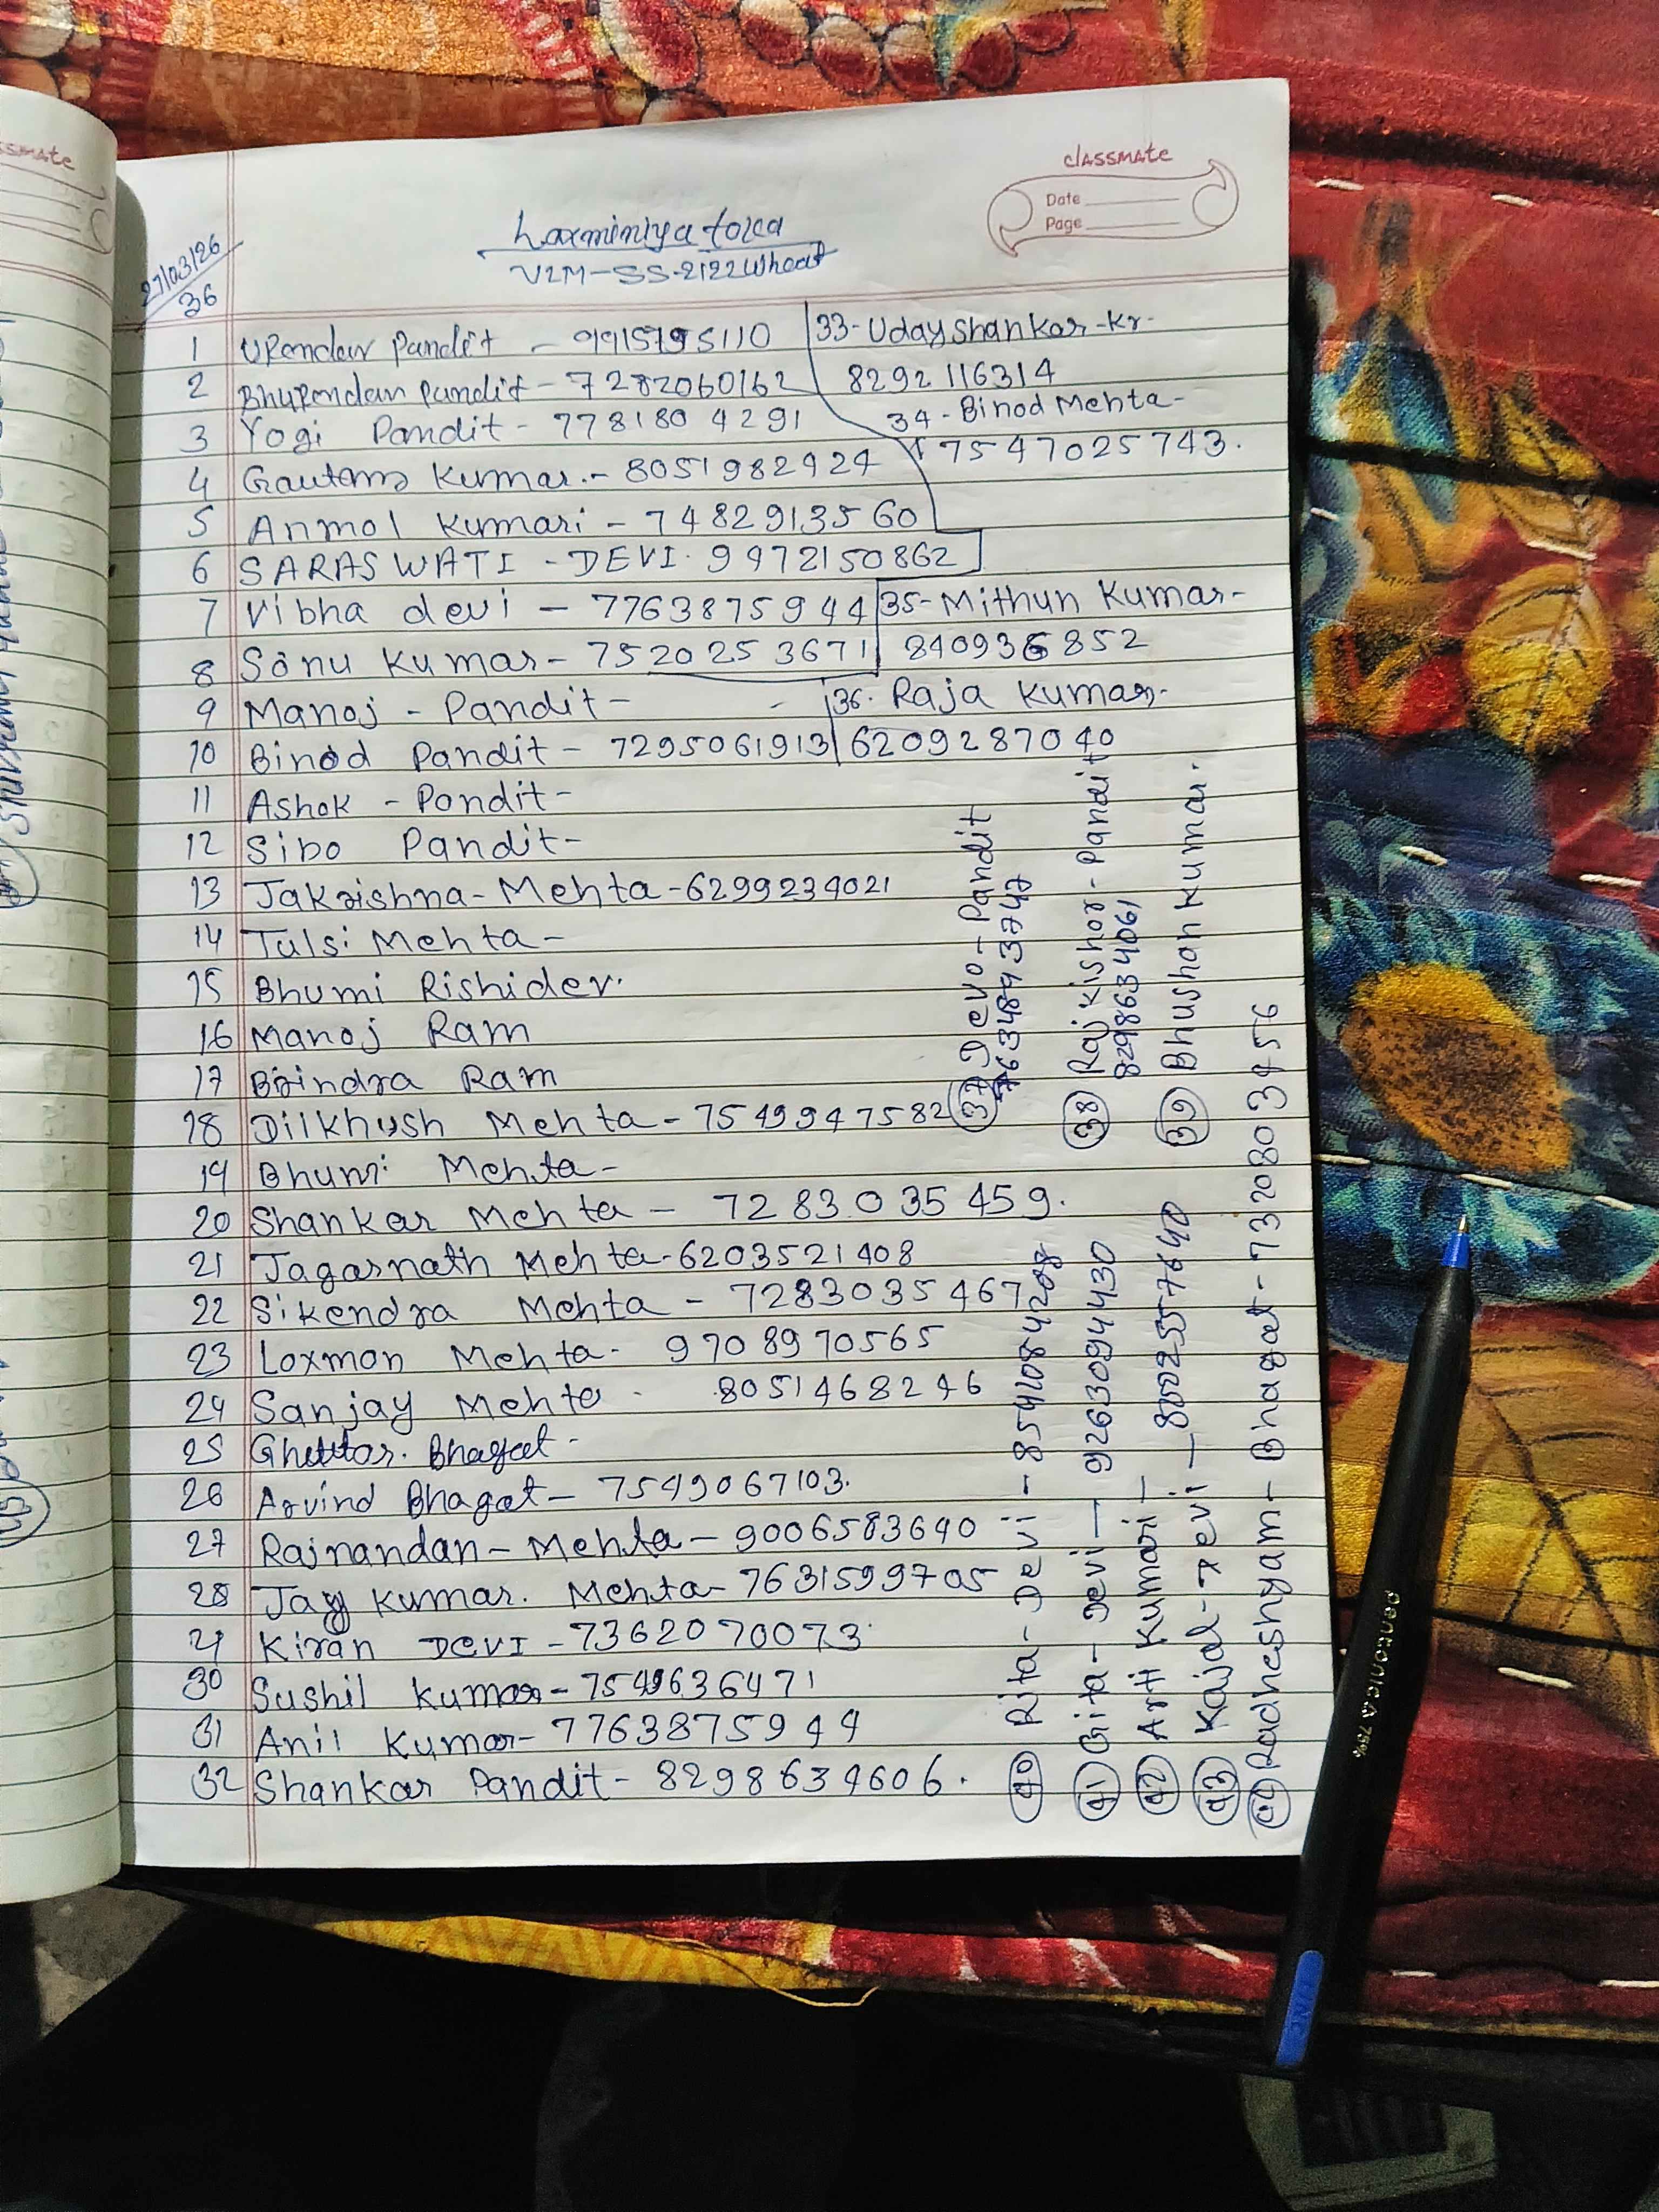 classmate
Date
Page
27/03/26
36
Laxminiya tola
VLM-SS-2122 Wheat
1 Upendar Pandit - 9915795110
2 Bhupendan Pandit - 7282060162
3 Yogi Pandit - 7781804291
4 Gautam Kumar. - 8051982924
5 Anmol Kumari - 7482913560
6 SARASWATI - DEVI. 9972150862
7 Vibha devi - 7763875944
8 Sonu Kumar - 7520253671
9 Manoj - Pandit -
10 Binod Pandit - 7295061913
11 Ashok - Pandit -
12 Sibo Pandit -
13 Jakrishna - Mehta - 6299234021
14 Tulsi Mehta -
15 Bhumi Rishidev.
16 Manoj Ram
17 Birindra Ram
18 Dilkhush Mehta - 7549947582
19 Bhumi Mehta -
20 Shankar Mehta - 7283035459.
21 Jagarnath Mehta - 6203521408
22 Sikendra Mehta - 7283035467
23 Loxmon Mehta - 9708970565
24 Sanjay Mehta - 8051468246
25 Bhagat -
26 Arvind Bhagat - 7549067103.
27 Rajnandan - Mehta - 9006583640
28 Jay Kumar. Mehta - 7631599705
29 Kiran DEVI - 7362070073.
30 Sushil Kumar - 7549636471
31 Anil Kumar - 7763875944
32 Shankar Pandit - 8298634606.
33 - Uday Shankar - Kr -
8292116314
34 - Binod Mehta -
7547025743.
35 - Mithun Kumar -
840936852
36. Raja Kumar -
6209287040
37 Devo - Pandit
38 Raj Kishor - Pandit
8298634061
39 Bhushan Kumar.
40 Rita - Devi - 8541084208
41 Gita - Devi - 9263094430
42 Arti Kumari -
43 Kajal - Devi - 8002557640
Radheshyam - Bhagat - 7320803456
classmate
pentonic 0.7
LINC